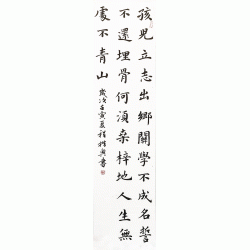 孩兒立志出鄉關學不成名誓
不還埋骨何須桑梓地人生無
處不青山
歲次壬寅夏程書